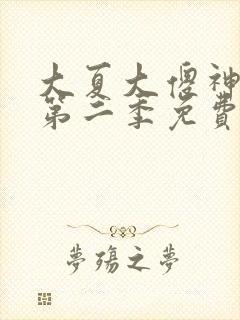 大夏大傻神
第二季免費
夢殤之夢